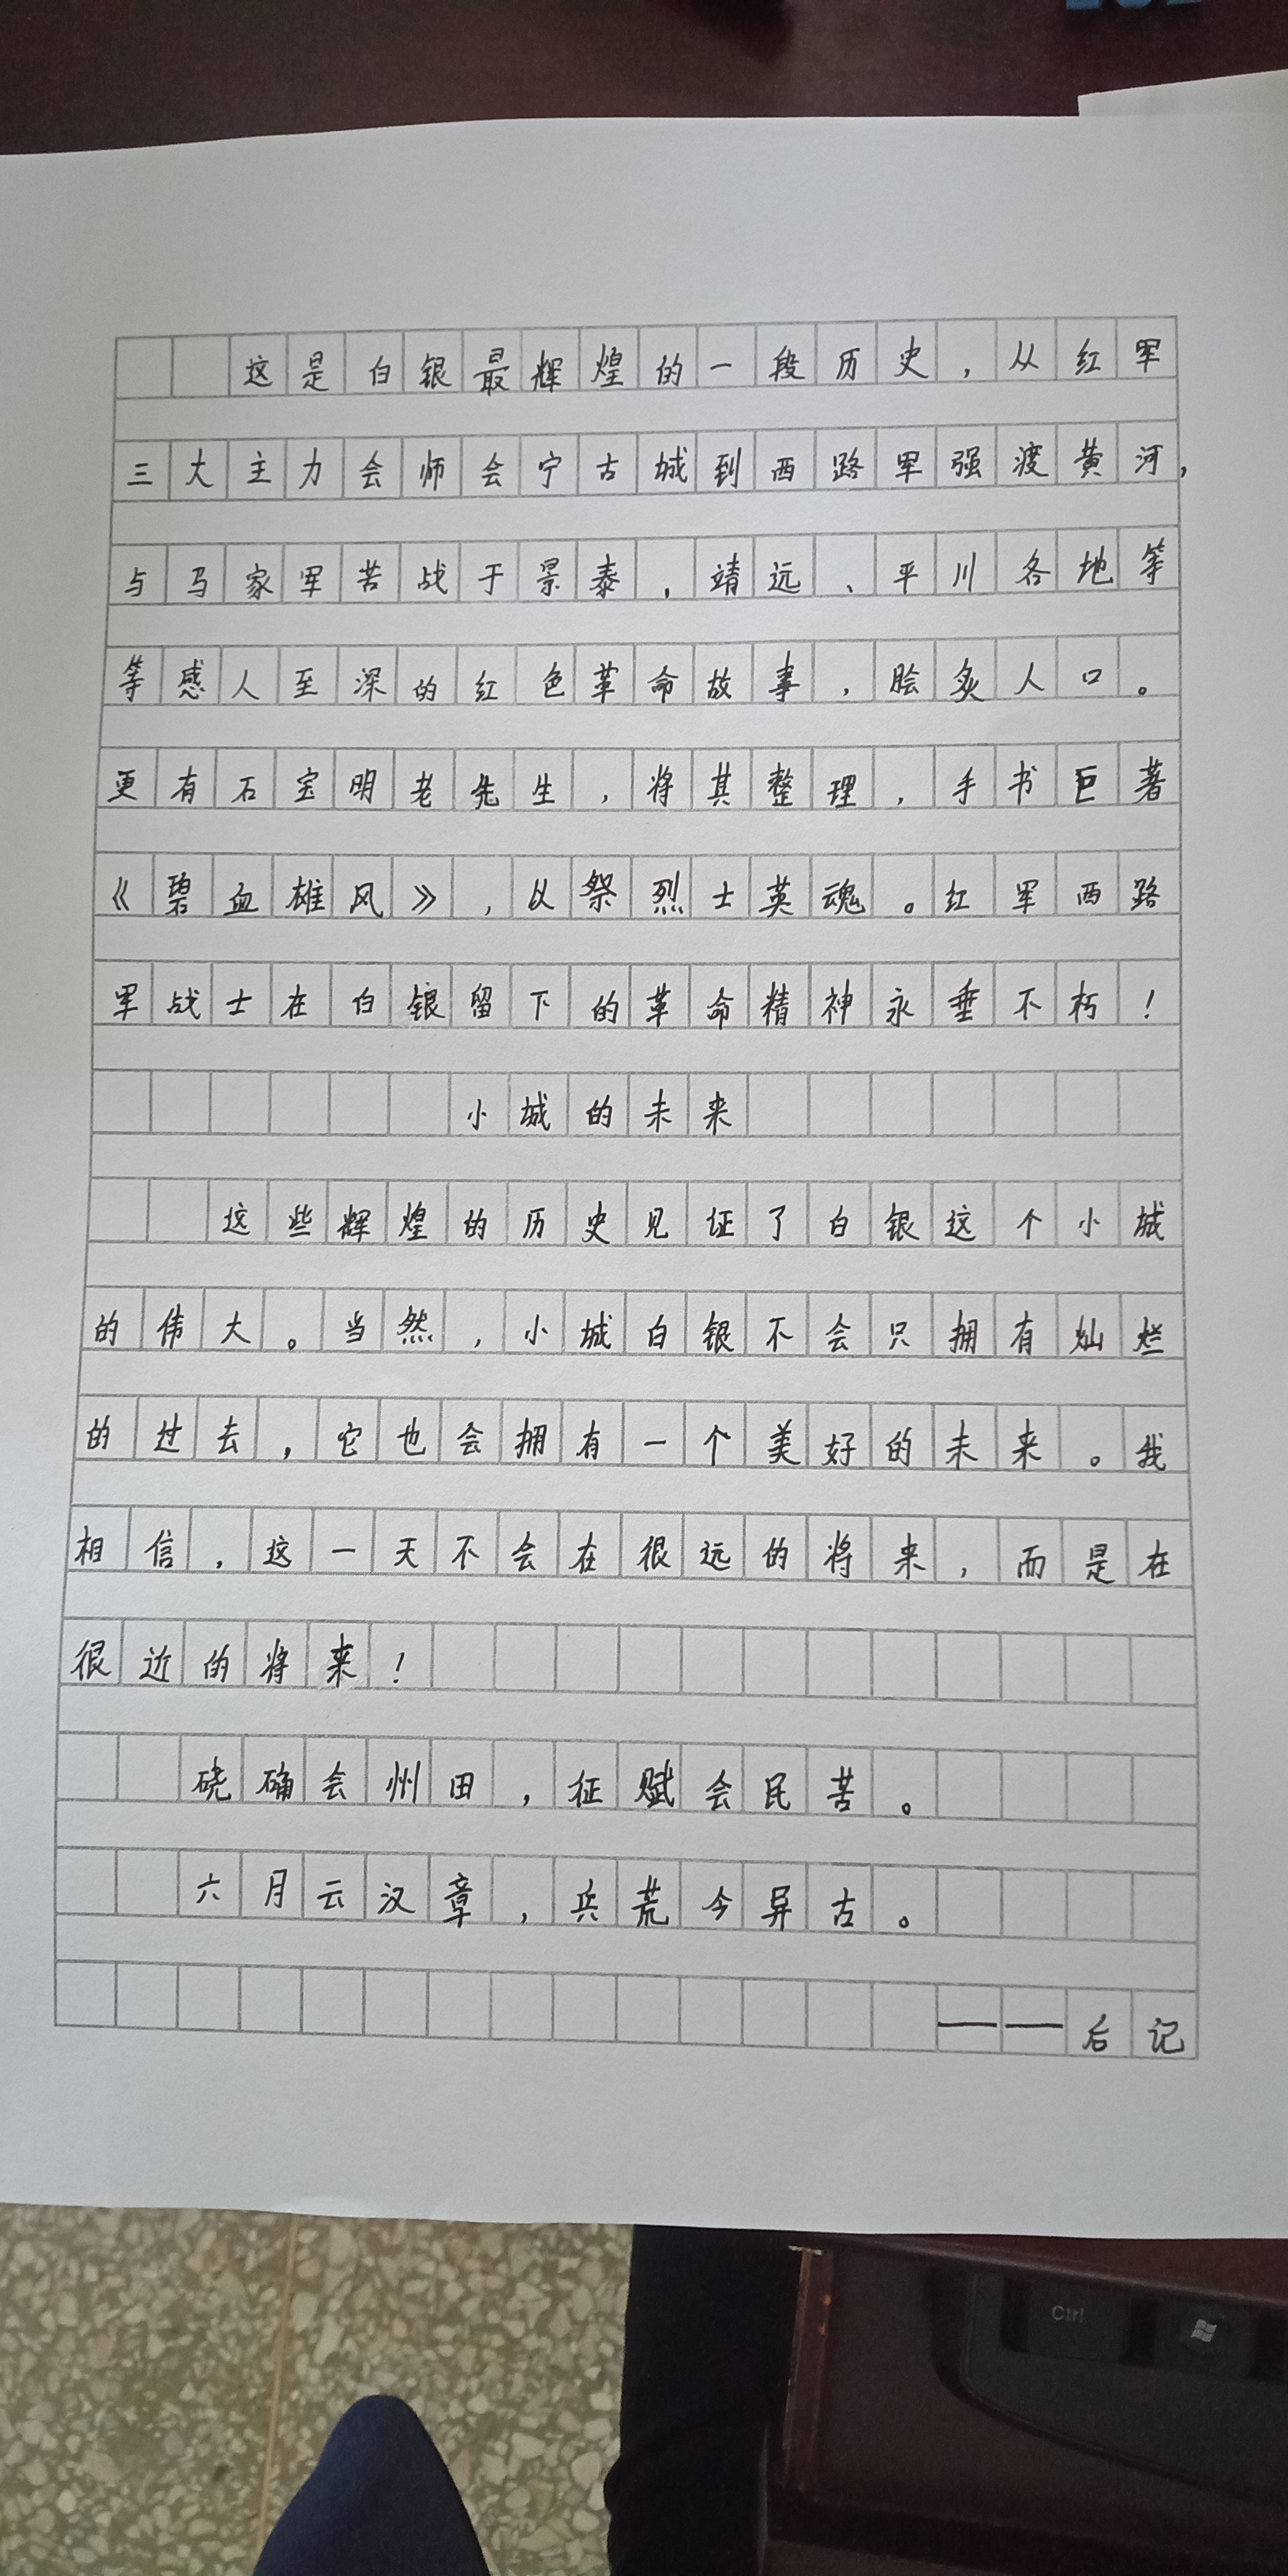 这是白银最辉煌的一段历史，从红军
三大主力会师会宁古城到西路军强渡黄河，
与马家军苦战于景泰，靖远、平川各地等
等感人至深的红色革命故事，脍炙人口。
更有石宝明老先生，将其整理，手书巨著
《碧血雄风》，以祭烈士英魂。红军西路
军战士在白银留下的革命精神永垂不朽！
小城的未来
这些辉煌的历史见证了白银这个小城
的伟大。当然，小城白银不会只拥有灿烂
的过去，它也会拥有一个美好的未来。我
相信，这一天不会在很远的将来，而是在
很近的将来！
硗确会州田，征赋会民苦。
六月云汉章，兵荒今异古。
——后记
Ctrl